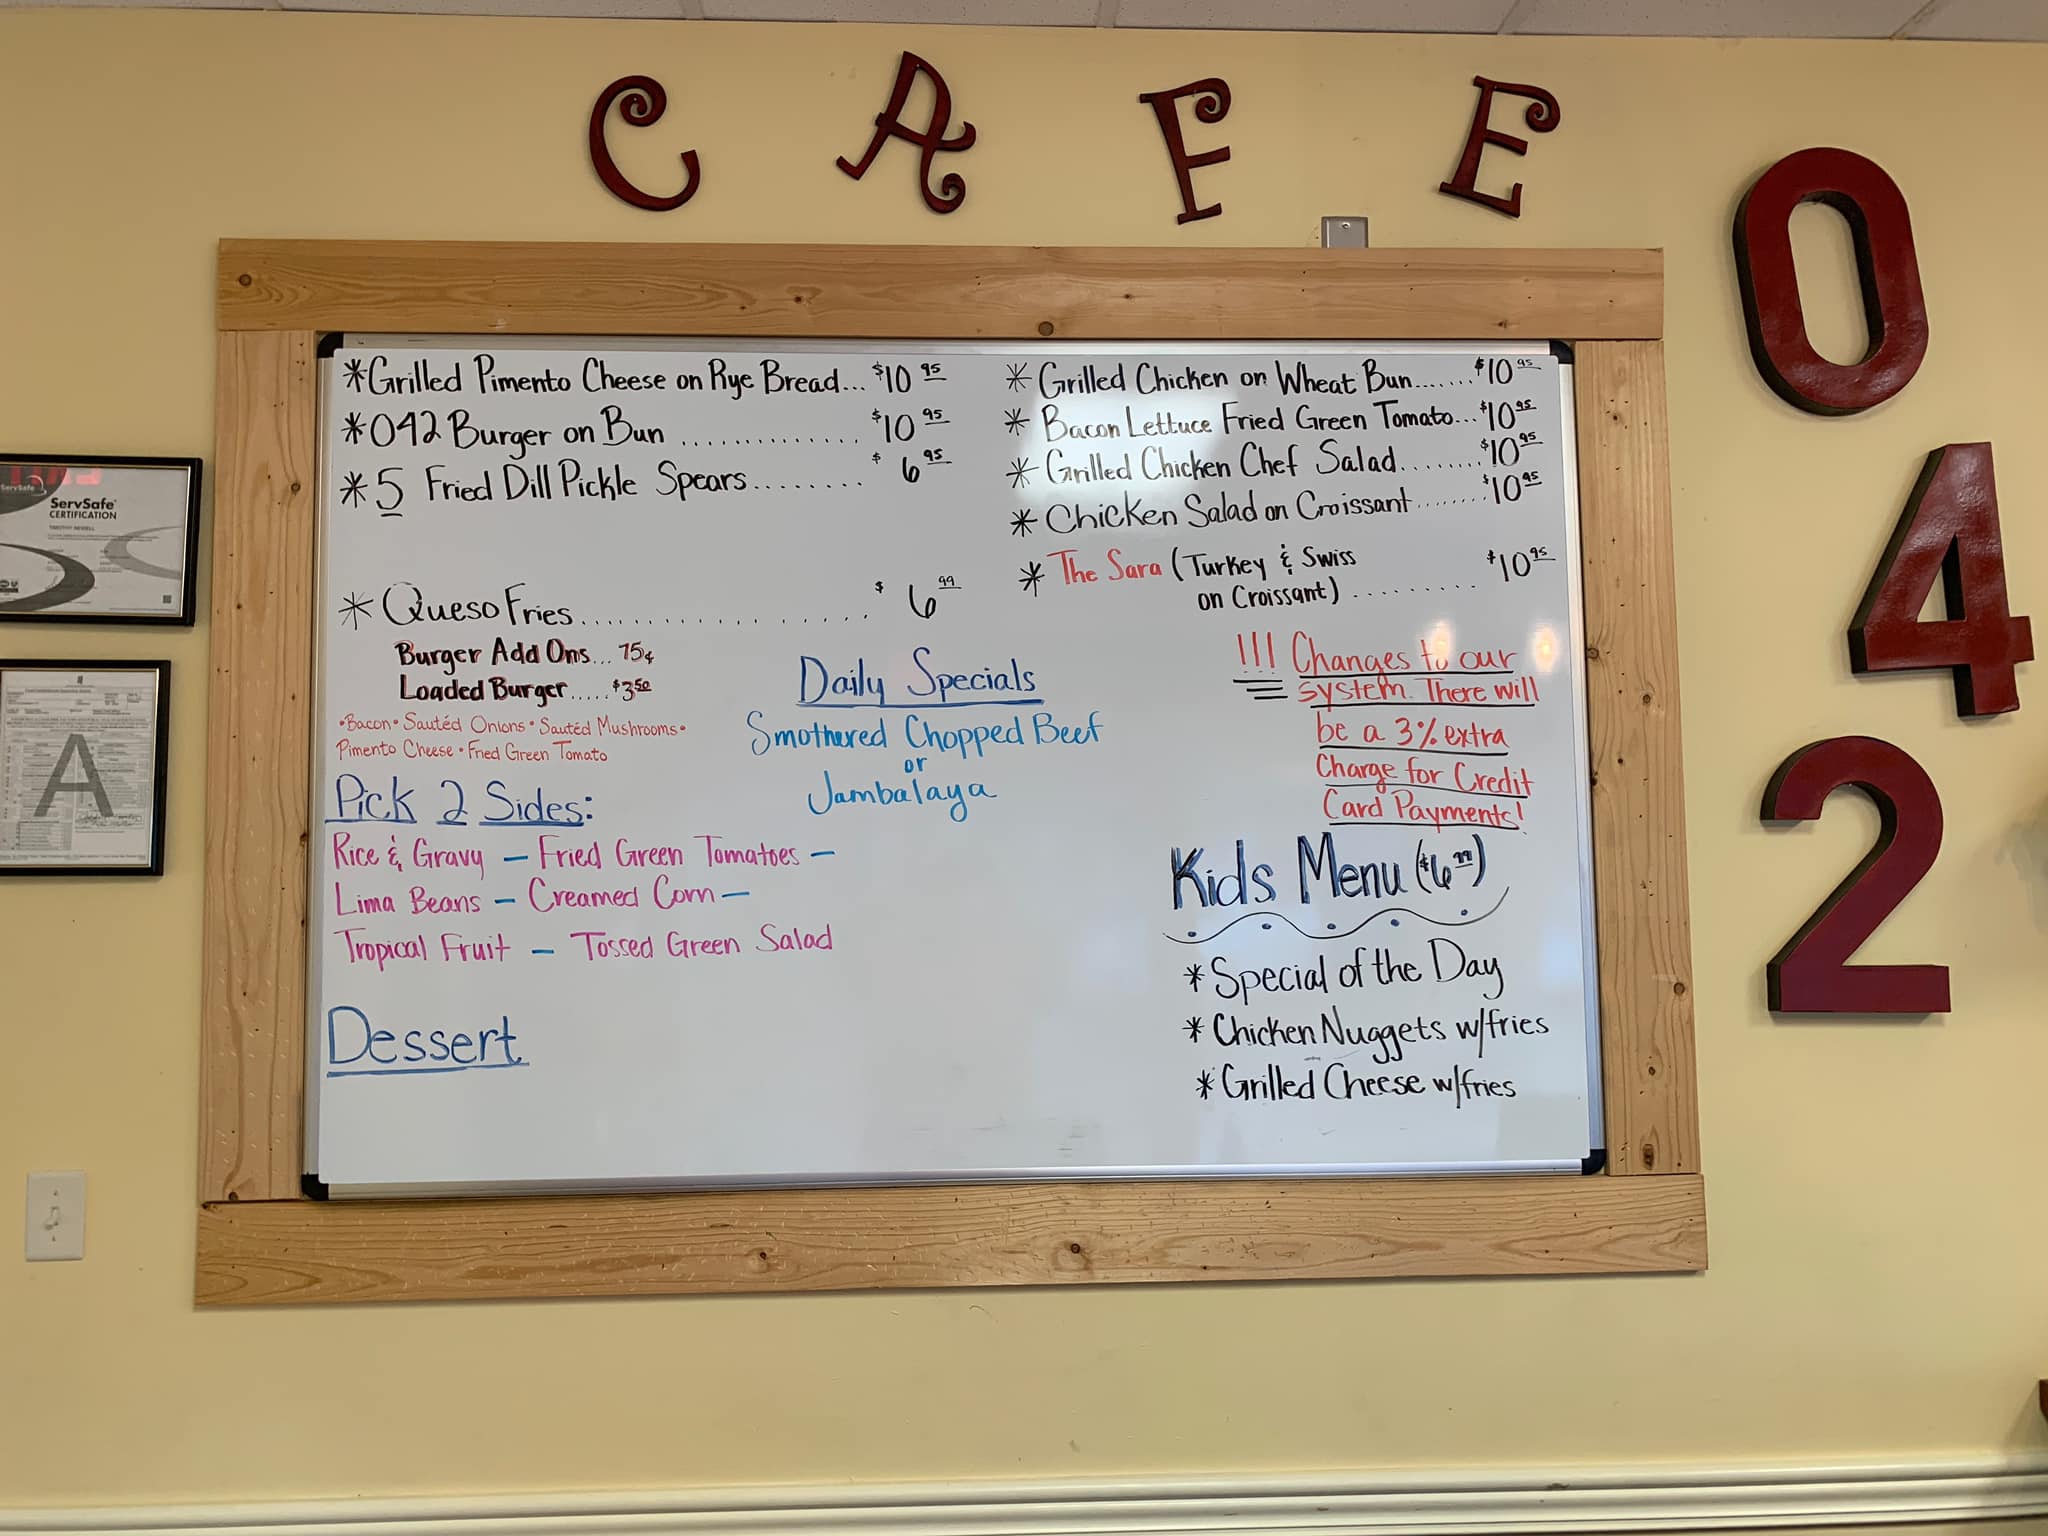 CAFE
042
*Grilled Pimento Cheese on Rye Bread... $10.95
*042 Burger on Bun ............. $10.95
*5 Fried Dill Pickle Spears........ $6.95
* Queso Fries.................. $6.99
Burger Add Ons... 75¢
Loaded Burger..... $3.50
•Bacon• Sautéd Onions• Sautéd Mushrooms•
Pimento Cheese • Fried Green Tomato
Pick 2 Sides:
Rice & Gravy – Fried Green Tomatoes –
Lima Beans – Creamed Corn –
Tropical Fruit – Tossed Green Salad
Dessert
Daily Specials
Smothered Chopped Beef
or
Jambalaya
* Grilled Chicken on Wheat Bun....... $10.95
* Bacon Lettuce Fried Green Tomato... $10.95
* Grilled Chicken Chef Salad........ $10.95
* Chicken Salad on Croissant ....... $10.95
* The Sara (Turkey & Swiss
on Croissant) ........ $10.95
!!! Changes to our
system. There will
be a 3% extra
Charge for Credit
Card Payments!
Kids Menu ($6.99)
* Special of the Day
* Chicken Nuggets w/fries
* Grilled Cheese w/fries
ServSafe
ServSafe
CERTIFICATION
A